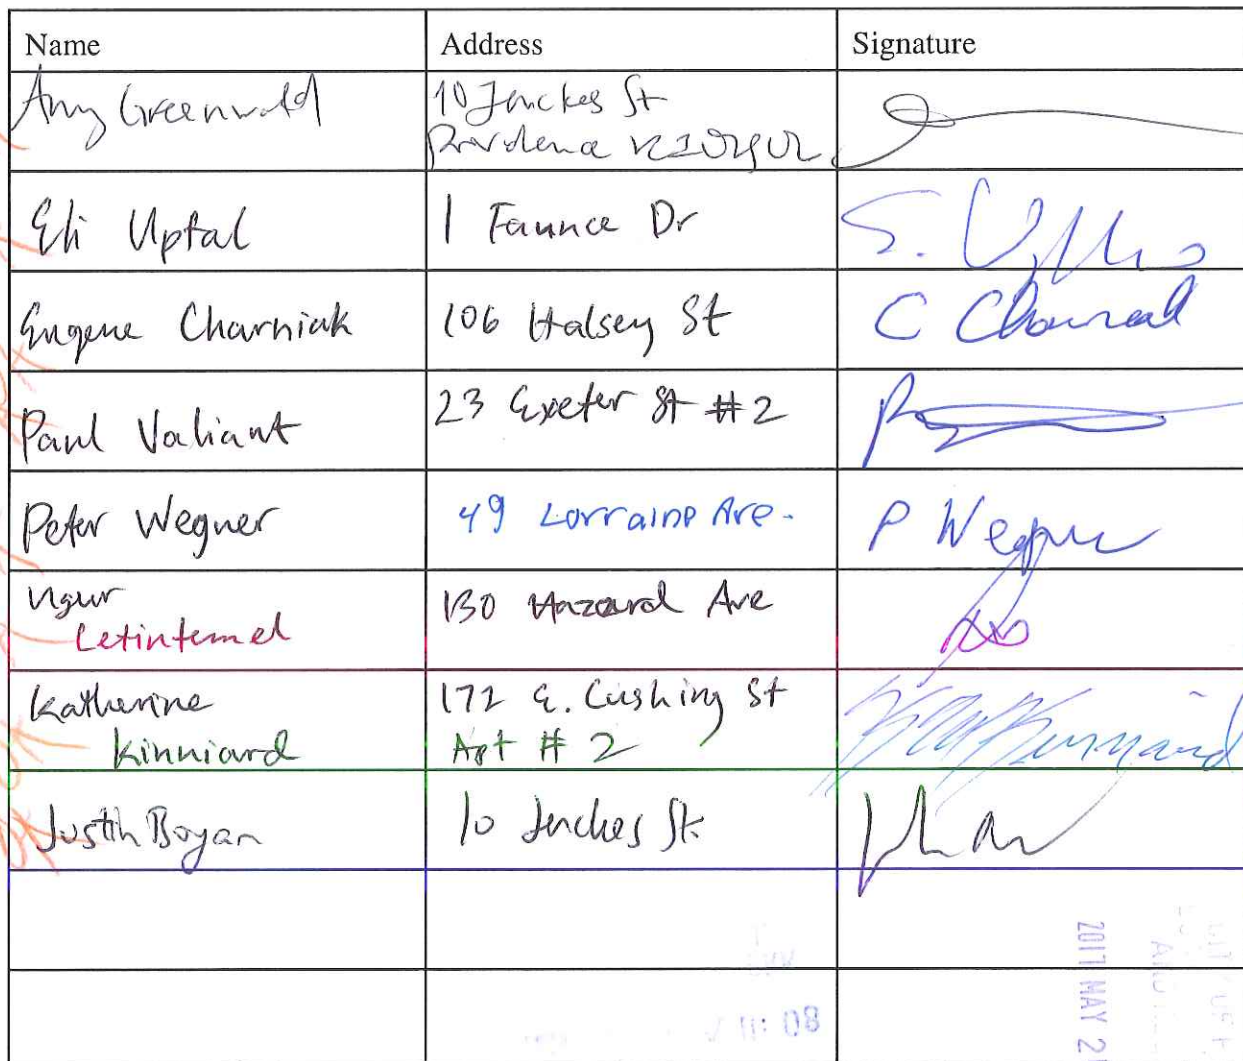 Name Address Signature
Amy Greenwald 10 Jenckes St
Providence RI 02902
Eli Upfal 1 Faunce Dr
Eugene Charniak 106 Halsey St C Charniak
Paul Valiant 23 Exeter St #2
Peter Wegner 49 Lorraine Ave. P Wegner
Ugur 130 Hazard Ave
Cetintemel
Katherine 172 E. Cushing St
Kinniard Apt # 2
Justin Boyan 10 Jenckes St.
2017 MAY 2